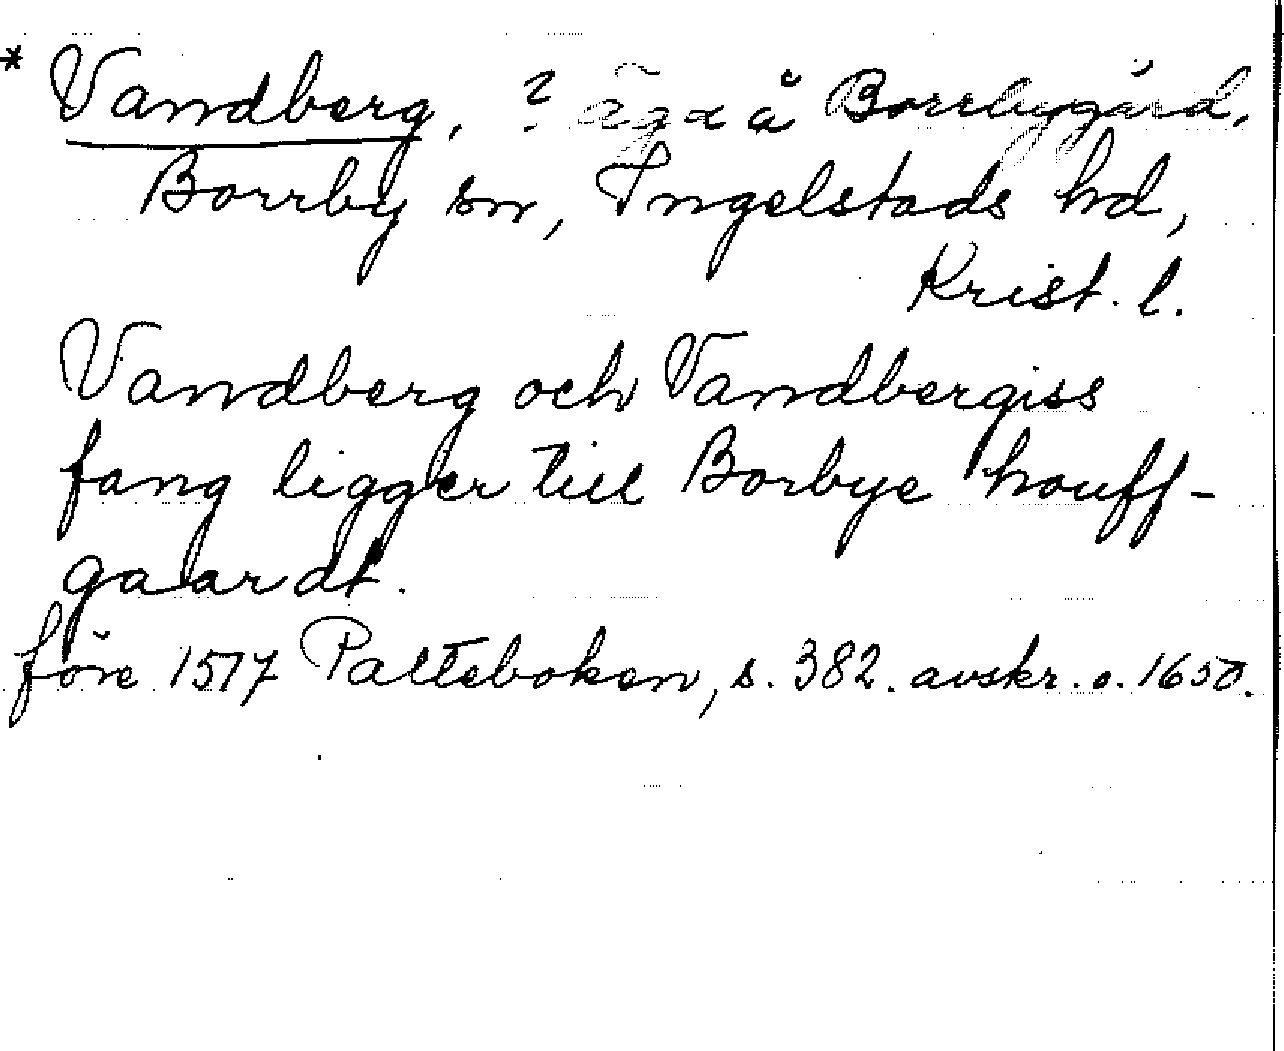 * Vandberg, ? äga å Borrbygård,
Borrby sn, Ingelstads hd,
Krist. l.
Vandberg och Vandbergiss
fang ligger till Borbye houff-
gaardt.
före 1577 Palteboken, s. 382. avskr. o. 1650.